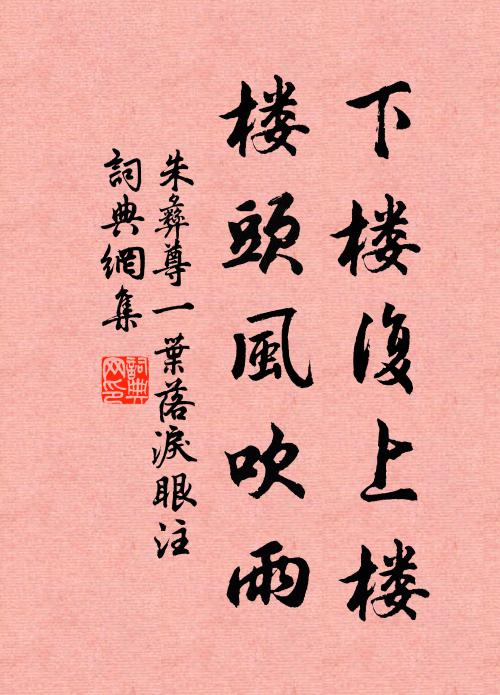 下楼復上楼
楼頭風吹雨
朱彝尊一葉落淚眼注
詞典網集
詞典
网印